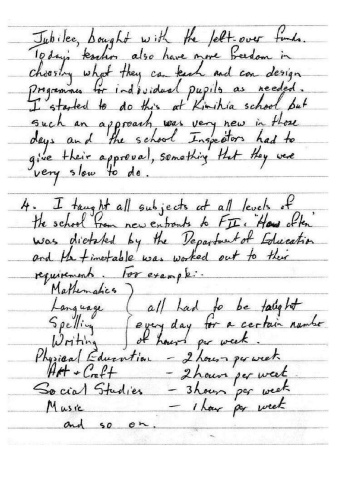 Jubilee, bought with the left-over funds.
Todays teachers also have more freedom in
choosing what they can teach and can design
programmes for individual pupils as needed.
I started to do this at Kimihia school but
such an approach was very new in those
days and the school Inspectors had to
give their approval, something that they were
very slow to do.
4. I taught all subjects at all levels of
the school from new entrants to FII. "How often"
was dictated by the Department of Education
and the timetable was worked out to their
requirements. For example:-
Mathematics
Language all had to be taught
Spelling every day for a certain number
Writing of hours per week.
Physical Education - 2 hours per week
Art + Craft - 2 hours per week.
Social Studies - 3 hours per week
Music - 1 hour per week
and so on.